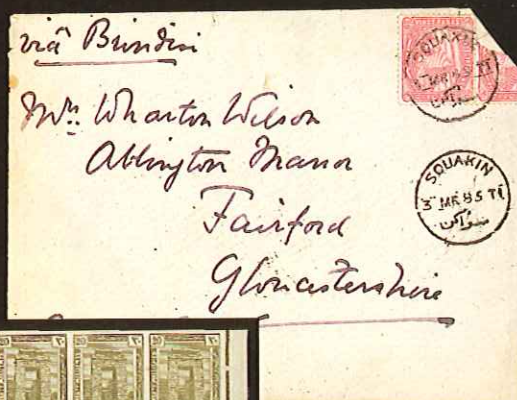 viâ Brindisi
SOUAKIN
Mrs Wharton Wilson
Ablington Manor
Fairford
Gloucestershire
SOUAKIN
3 MR 85 T1
سواكن